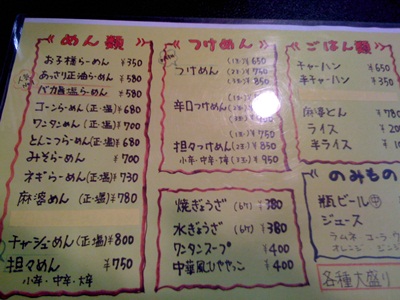 めん類
お子様らーめん ¥350
あっさり正油らーめん ¥580
バカ塩らーめん ¥580
コーンらーめん(正・塩) ¥680
ワンタンめん(正・塩) ¥700
とんこつらーめん(正・塩) ¥680
みそらーめん ¥700
ネギらーめん(正・塩) ¥730
麻婆めん (正・塩) ¥780
チャーシューめん(正・塩) ¥800
担々めん ¥750
小辛・中辛・大辛
つけめん
¥650
つけめん ¥750
¥850
辛口つけめん
¥750
担々つけめん ¥850
小辛・中辛・大辛 ¥950
焼ぎょうざ (6ケ) ¥380
水ぎょうざ (6ケ) ¥380
ワンタンスープ ¥400
中華風ひややっこ ¥400
ごはん類
チャーハン ¥650
半チャーハン ¥350
麻婆どん ¥780
ライス ¥200
半ライス
のみもの
瓶ビール 中
ジュース
ラムネ コーラ
オレンジ
各種大盛り